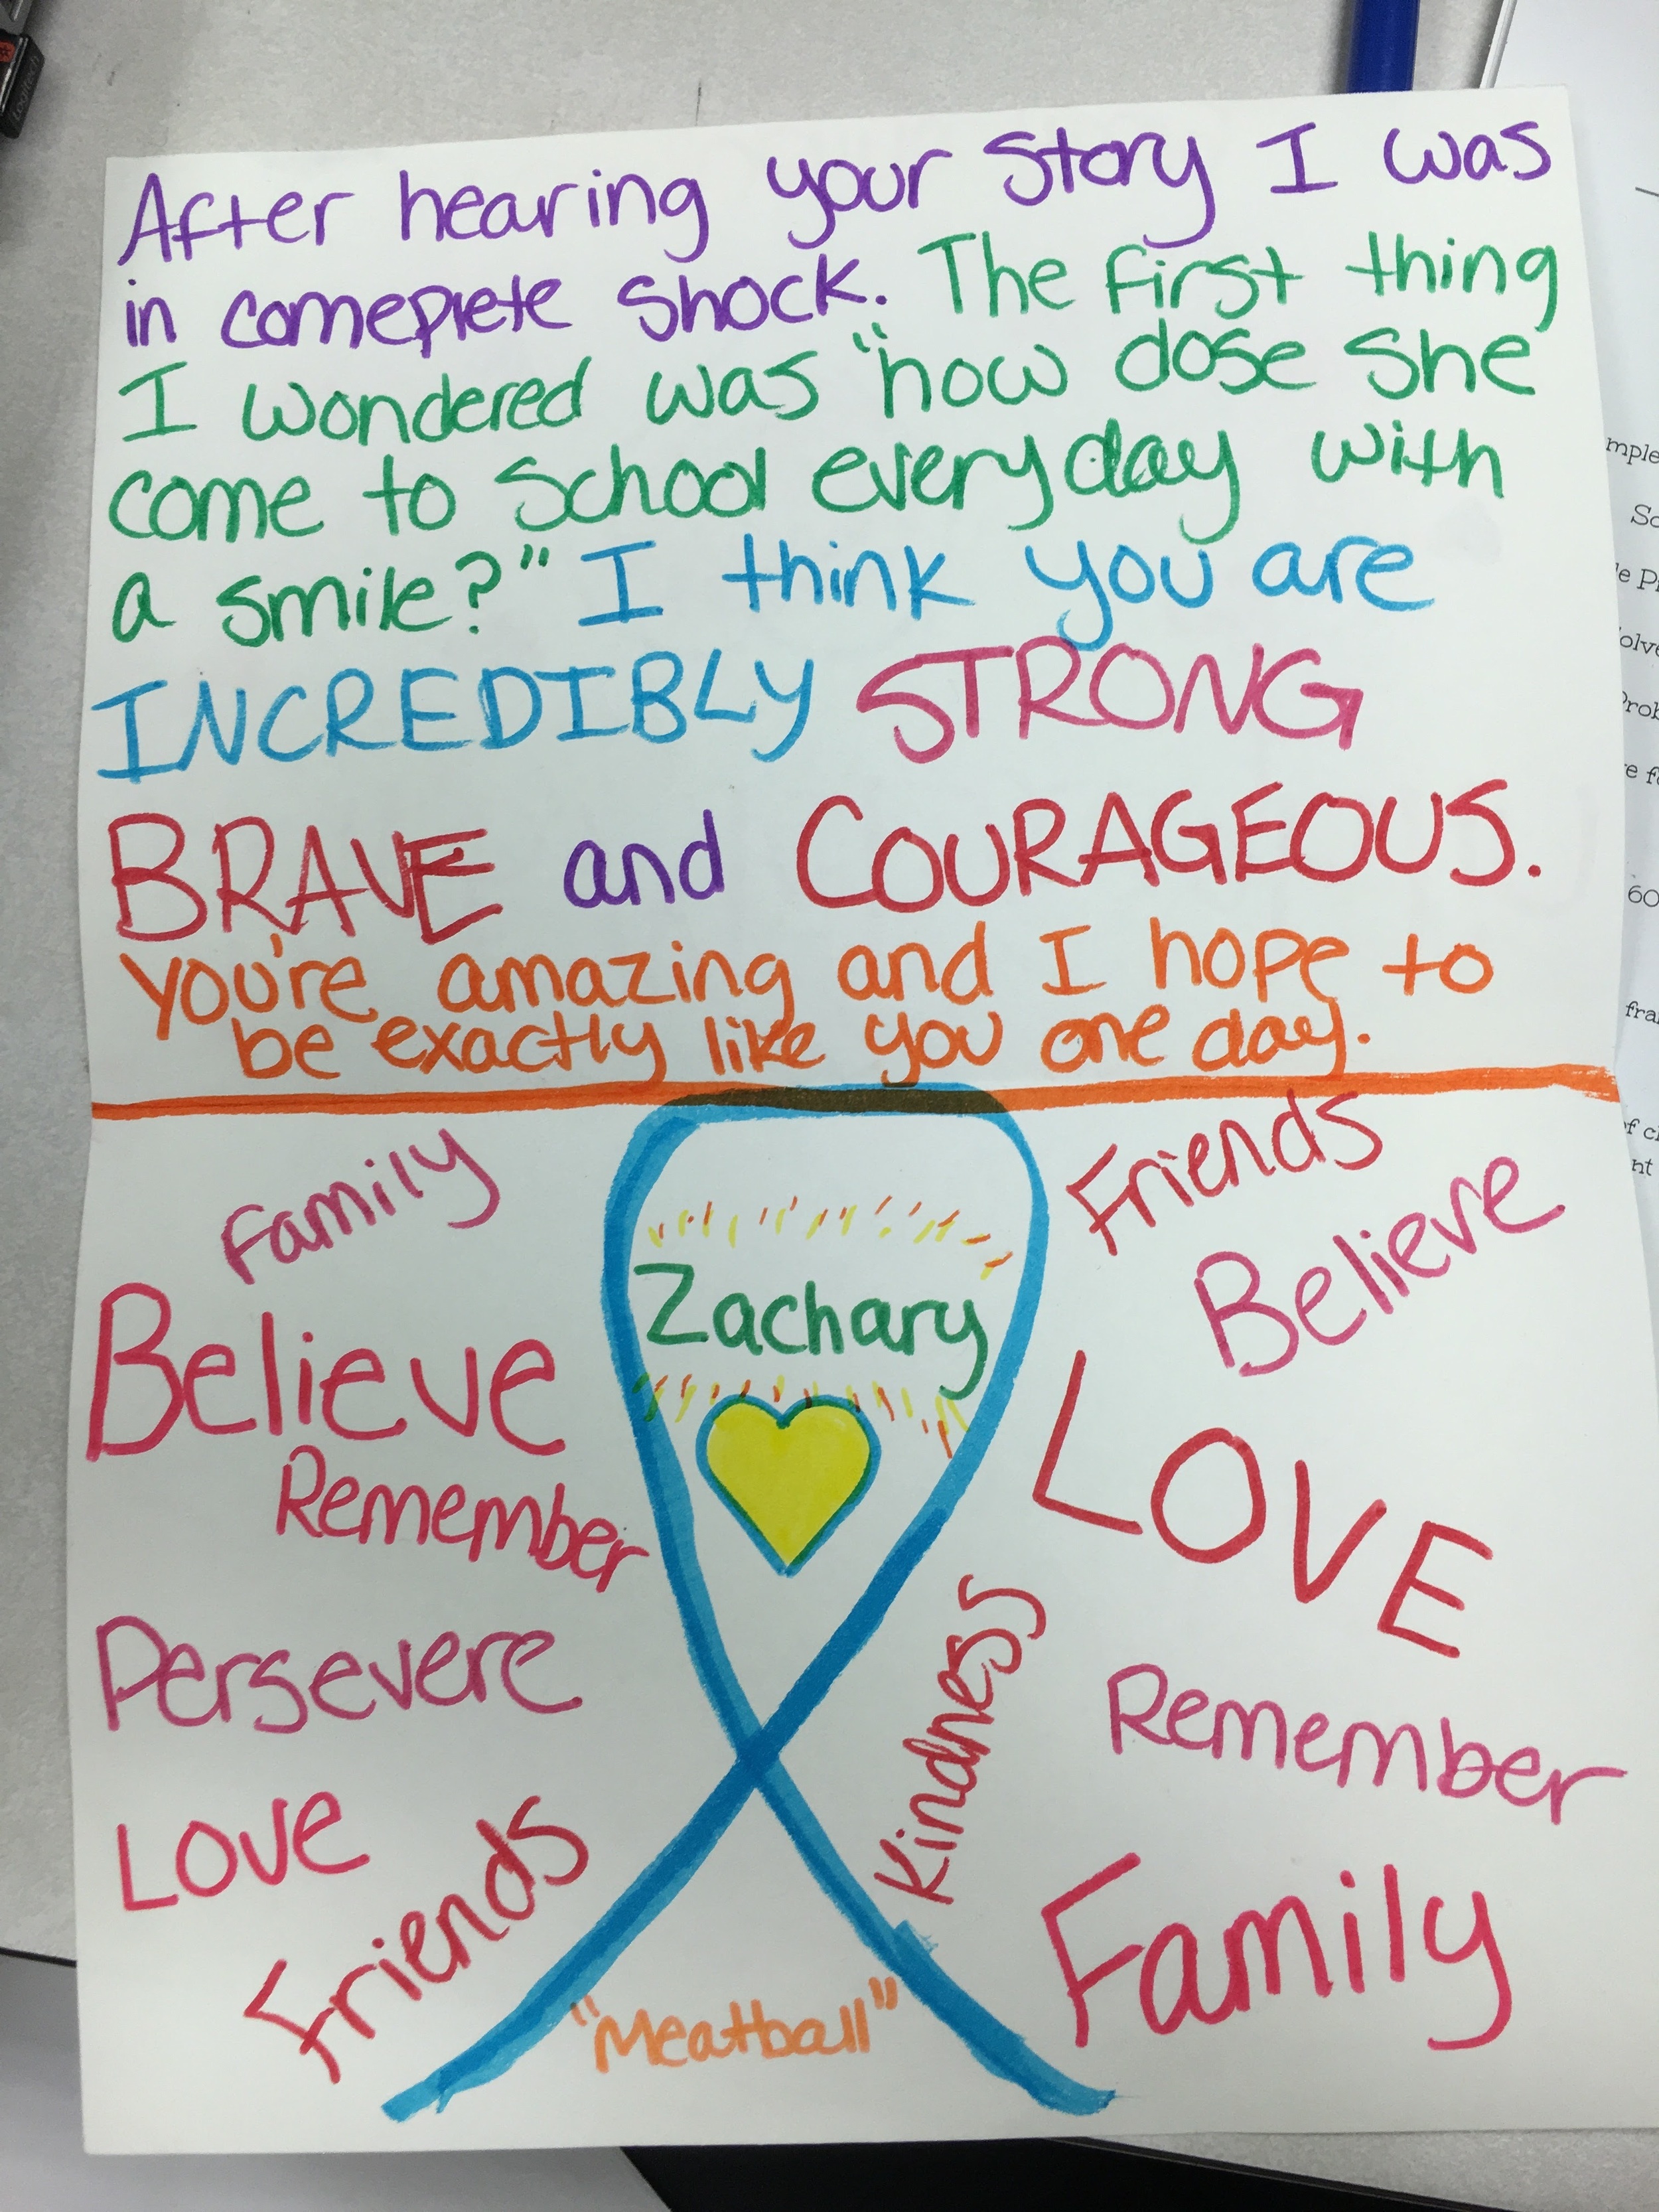 After hearing your story I was
in comeplete shock. The first thing
I wondered was "how dose she
come to school everyday with
a smile?" I think you are
INCREDIBLY STRONG
BRAVE and COURAGEOUS.
you're amazing and I hope to
be exactly like you one day.
Family
Friends
Believe
Zachary
Believe
Remember
LOVE
Persevere
Kindness
Remember
Love
Friends
Family
"Meatball"
Logitech
60